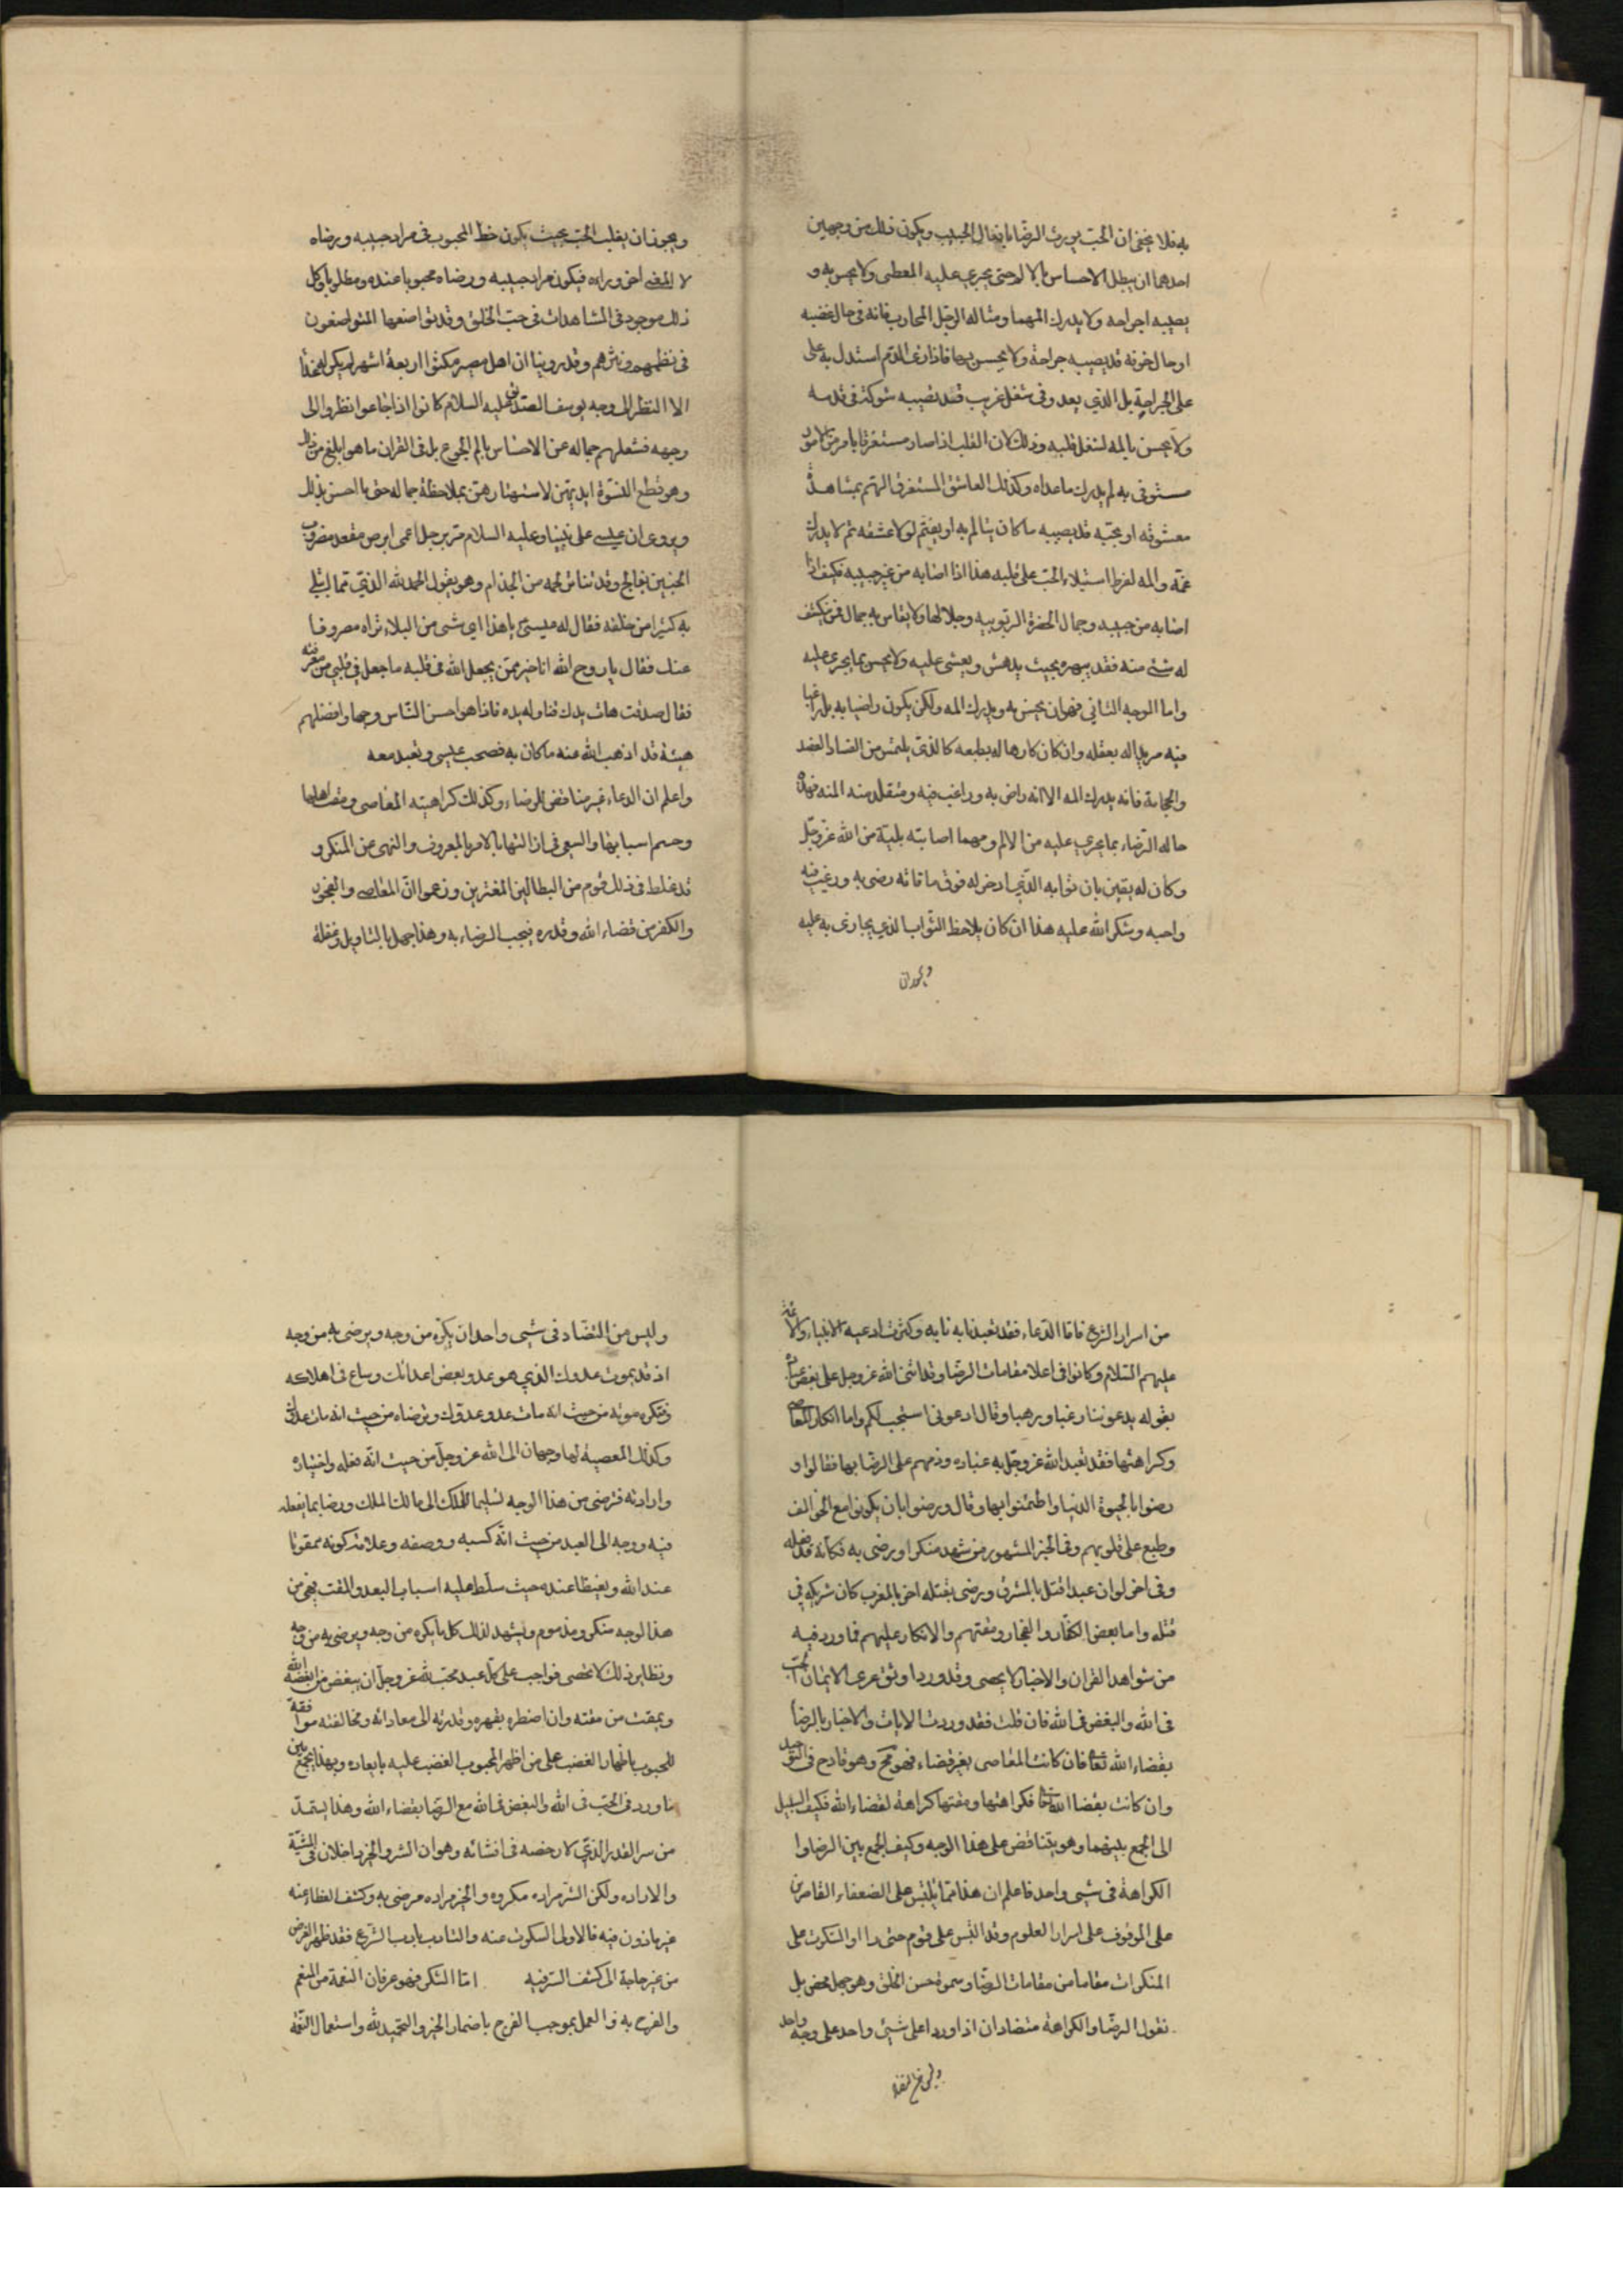 به فلا يخفى ان الحب يورث الرضا بافعال الحبيب ويكون ذلك من وجهين
احدهما ان يبطل الاحساس بالالم حتى يجرى عليه المعطى ولا يحس به و
يصيبه اجراحه ولا يدرك المهما ومثاله الرجل المحارب فانه فى حال غضبه
او حال خوفه قد يصيبه جراحة ولا يحسن بها فاذا رى الدم استدل به على
على الجراحة بل الذي يعدو فى شغل غريب قد تصيبه شوكة فى قدمه
ولا يحسن بالمه لشغل قلبه وذلك لان القلب اذا صار مستغرقا بامر من الامور
مستوفى به لم يدرك ماعداه وكذلك العاشق المستغرق الهم بمشاهدة
معشوقه او محبّه قد يصيبه ما كان يتالم به او يغتم لولا عشقه ثم لا يدرك
غمّه والمه لفرط استيلاء الحب على قلبه هذا اذا اصابه من غير حبيبه فكيف اذا
اصابه من حبيبه وجمال الحضرة الربوبيه وجلالها ولا يقاس به جمال فمن ينكشف
له شئ منه فقد يبهره بحيث يدهش ويغشى عليه ولا يحس بما يجرى عليه
واما الوجه الثاني فهو ان يحس به ويدرك المه ولكن يكون راضيا به بل راغبا
فيه مريدا له بعقله وان كان كارها له بطبعه كالذى يلتمس من الفصاد الفصد
والحجامة فانه يدرك المه الا انه راض به وراغب فيه ومتقلد منه المنه فهذا
حاله الرضاء بما يجري عليه من الالم ومهما اصابته بلية من الله عزوجل
وكان له يقين بان ثوابه الذي ادخر له فوق ما فاته رضى به ورغب فيه
واحبه وشكر الله عليه هذا ان كان يلاحظ الثواب الذي يجازى به عليه
ويجوز ان
ويجوز ان يغلب الحب بحيث يكون حظ المحبوب فى مراد حبيبه ورضاه
لا لمعنى اخر وراءه فيكون مراد حبيبه ورضاه محبوبا عنده ومطلوبا وكل
ذلك موجود فى المشاهدات فى حب الخلق وقد تواصفها المتواصفون
فى نظمهم ونثرهم وقد روينا ان اهل مصر مكثوا اربعة اشهر لم يكن لهم غذا
الا النظر الى وجه يوسف الصديق عليه السلام كانوا اذا جاعوا نظروا الى
وجهه فشغلهم جماله عن الاحساس بالم الجوع بل فى القران ما هو ابلغ من ذلك
وهو قطع النسوة ايديهن لاستهتارهن بملاحظة جماله حتى ما احسن بذلك
ويروى ان عيسى على نبينا وعليه السلام مر برجل اعمى ابرص مقعد مضروب
الجنبين بفالج وقد تناثر لحمه من الجذام وهو يقول الحمد لله الذي عافانى مما ابتلى
به كثيرا من خلقه فقال له عيسى يا هذا اي شى من البلاء تراه مصروفا
عنك فقال يا روح الله انا خير ممن يجعل الله فى قلبه ما جعل فى قلبي من معرفته
فقال صدقت هات يدك فناوله يده فاذا هو احسن الناس وجها وافضلهم
هيئة قد اذهب الله عنه ما كان به فصحب عيسى وتعبد معه
واعلم ان الدعاء غير مناقض للرضاء وكذلك كراهية المعاصى ومقت اهلها
وحسم اسبابها والسعى فى ازالتها بالامر بالمعروف والنهى عن المنكر و
قد غلط فى ذلك قوم من البطالين المغترين وزعموا ان المعاصى والفجور
والكفر من قضاء الله وقدره فيجب الرضاء به وهذا جهل بالتاويل وغفلة
من اسرار الشرع فاما الدعاء فقد تعبدنا به نابه وكثرت ادعيه الانبياء والائمة
عليهم السلام وكانوا فى اعلا مقامات الرضا وقد اثنى الله عزوجل على بعض عباده
بقوله يدعوننا رغبا ورهبا وقال ادعونى استجب لكم واما انكار المعاصى
وكراهتها فقد تعبد الله عزوجل به عباده وذمهم على الرضا بها فقال وا و
رضوا بالحيوة الدنيا واطمئنوا بها وقال ورضوا بان يكونوا مع الخوالف
وطبع على قلوبهم وفى الخبر المشهور من شهد منكرا ورضى به فكانه قد فعله
وفى اخر لو ان عبدا قتل بالمشرق ورضى بقتله اخر بالمغرب كان شريكه فى
قتله واما بعض الكفار والفجار ومقتهم والانكار عليهم فما ورد فيه
من شواهد القران والاخبار لا يحصى وقد ورد اوثق عرى الايمان الحب
فى الله والبغض فى الله فان قلت فقد وردت الايات والاخبار بالرضا
بقضاء الله تعا فان كانت المعاصى بغير قضاء فهو مح وهو قادح فى التوحيد
وان كانت بقضا الله تعا فكراهتها ومقتها كراهة لقضاء الله فكيف السبيل
الى الجمع بينهما وهو يتناقض على هذا الوجه وكيف الجمع بين الرضا وا
الكراهة فى شيى واحد فاعلم ان هذا مما يلتبس على الضعفاء القاصرين
على الوقوف على اسرار العلوم وقد التبس على قوم حتى راوا السكوت على
المنكرات مقاما من مقامات الرضا وسموه حسن الخلق وهو جهل محض بل
نقول الرضا والكراهة متضادان اذا وردا على شئ واحد على وجه واحد
وليس من التضا
وليس من التضاد فى شيى واحد ان يكره من وجه ويرضى به من وجه
اذ قد يموت عدوك الذي هو عدو بعض اعدائك وساع فى اهلاكه
فتكره موته من حيث انه مات عدو عدوك وترضاه من حيث انه مات عدوك
وكذلك المعصية لها وجهان الى الله عزوجل من حيث انه فعله واختياره
وارادته فترضى من هذا الوجه تسليما للملك الى مالك الملك ورضا بما يفعله
فيه ووجه الى العبد من حيث انه كسبه ووصفه وعلامة كونه ممقوتا
عند الله وبغيضا عنده حيث سلط عليه اسباب البعد والمقت فهى من
هذا لوجه منكر ومذموم ويشهد لذلك كل ما يكره من وجه ويرضى به من وجه
ونظاير ذلك لا تحصى فواجب على كل عبد محب لله عزوجل ان يبغض من ابغضه الله
ويمقت من مقته وان اضطره بقهره وقدرته الى معاداته ومخالفته موافقة
للمحبوب باظهار الغضب على من اظهر المحبوب الغضب عليه بابعاده وبهذا يجمع بين
ما ورد فى الحب فى الله والبغض فى الله مع الرضا بقضاء الله وهذا يستمد
من سر القدر الذي لا رخصه فى افشائه وهو ان الشر والخير داخلان فى المشية
والاراده ولكن الشر مراده مكروه والخير مراده مرضى به وكشف الغطاء عنه
غير ماذون فيه فالاولى السكوت عنه والتادب بادب الشرع فقد ظهر الغرض
من غير حاجة الى كشف السر فيه اما الشكر فهو عرفان النعمة من المنعم
والفرح به والعمل بموجب الفرح باضمار الخير والتحميد لله واستعمال النعمة